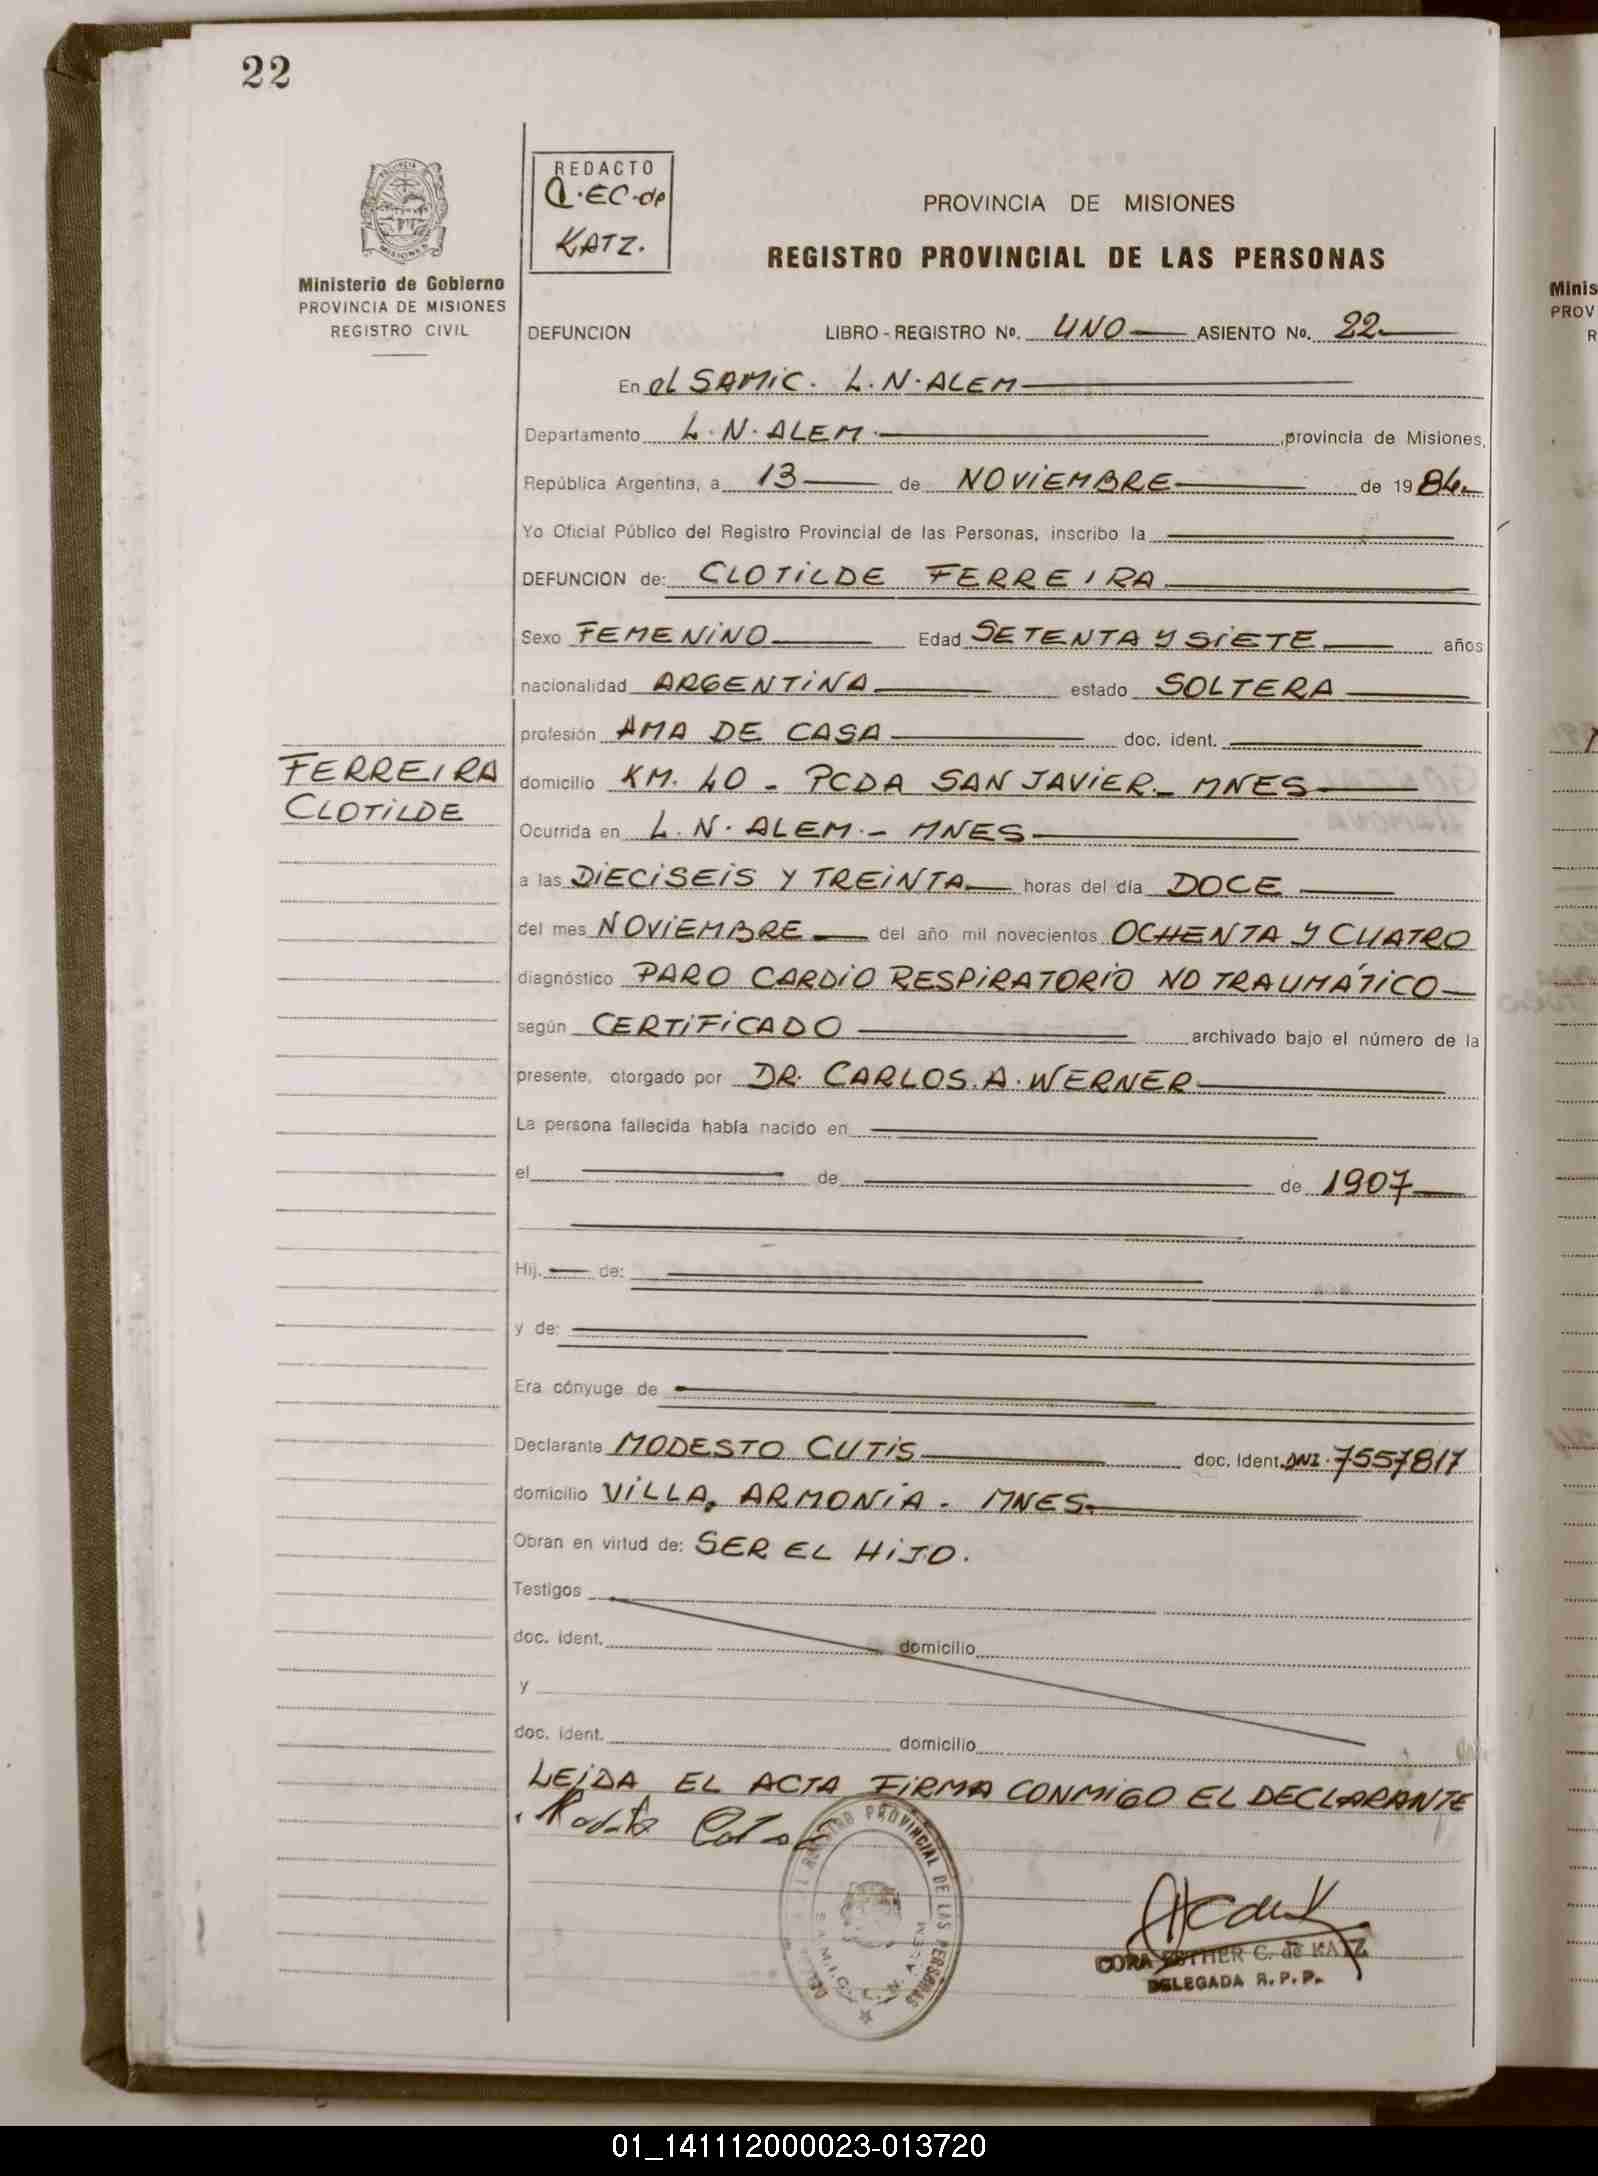 22
REDACTO
C.EC.de
KATZ.
Ministerio de Gobierno
PROVINCIA DE MISIONES
REGISTRO CIVIL
PROVINCIA DE MISIONES
REGISTRO PROVINCIAL DE LAS PERSONAS
DEFUNCION LIBRO-REGISTRO No. UNO ASIENTO No. 22
En el SAMIC. L.N.ALEM
Departamento L.N.ALEM. provincia de Misiones,
República Argentina, a 13 de NOVIEMBRE de 1984
Yo Oficial Público del Registro Provincial de las Personas, inscribo la
DEFUNCION de: CLOTILDE FERREIRA
Sexo FEMENINO Edad SETENTA Y SIETE años
nacionalidad ARGENTINA estado SOLTERA
profesión AMA DE CASA doc. ident.
FERREIRA
CLOTILDE
domicilio KM. 40 - PCDA SAN JAVIER.- MNES
Ocurrida en L.N.ALEM.- MNES
a las DIECISEIS Y TREINTA horas del día DOCE
del mes NOVIEMBRE del año mil novecientos OCHENTA Y CUATRO
diagnóstico PARO CARDIO RESPIRATORIO NO TRAUMÁTICO
según CERTIFICADO archivado bajo el número de la
presente, otorgado por DR. CARLOS.A.WERNER
La persona fallecida había nacido en
el de de 1907
Hij. de:
y de:
Era cónyuge de
Declarante MODESTO CUTIS doc. ident. DNI. 7557817
domicilio VILLA, ARMONIA. MNES.
Obran en virtud de: SER EL HIJO.
Testigos
doc. ident. domicilio
y
doc. ident. domicilio
LEIDA EL ACTA FIRMA CONMIGO EL DECLARANTE
REGISTRO PROVINCIAL DE LAS PERSONAS
S.A.M.I.C. L.N. ALEM
CORA ESTHER C. de KATZ
DELEGADA R.P.P.
Minis
PROV
R
01_141112000023-013720